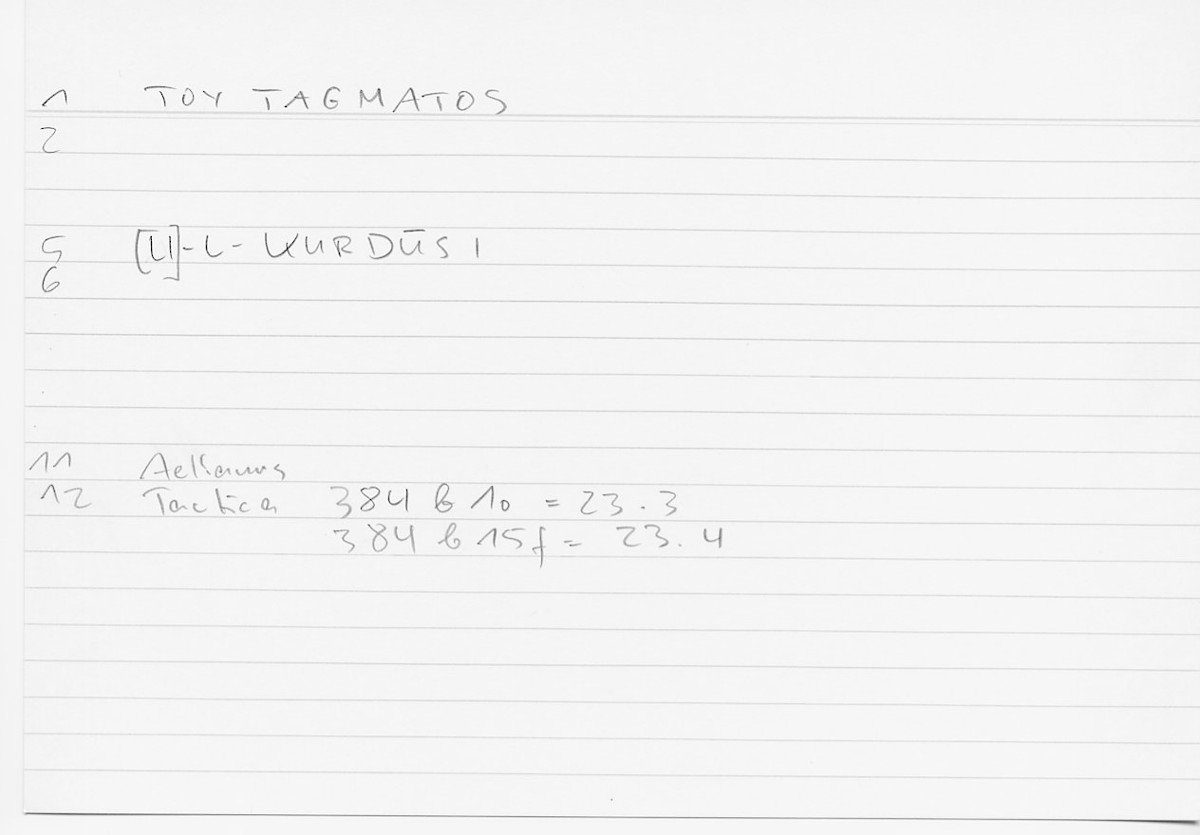 1 TOY TAGMATOS
2
5 [LI]-L-KURDŪSI
6
11 Aelianus
12 Tactica 384 b 10 = 23.3
384 b 15f = 23.4